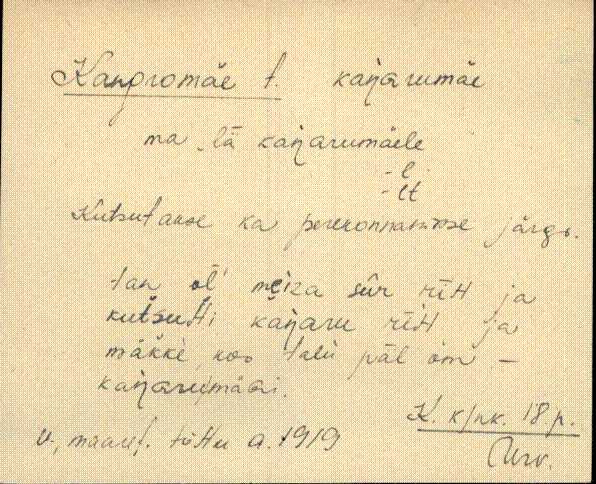 Kangromäe t. kaŋarumäe
ma lä kaŋarumäele
-l
-lt
Kutsutakse ka perekonnanime järgi.
tan ol' meiza sūr rīH ja
kutsutti kaŋaru rīH ja
mäkke, koo talu päl om –
kaŋarumäǵi.
K. k/nk. 18 p.
v, maaref. tõttu a. 1919
Urv.